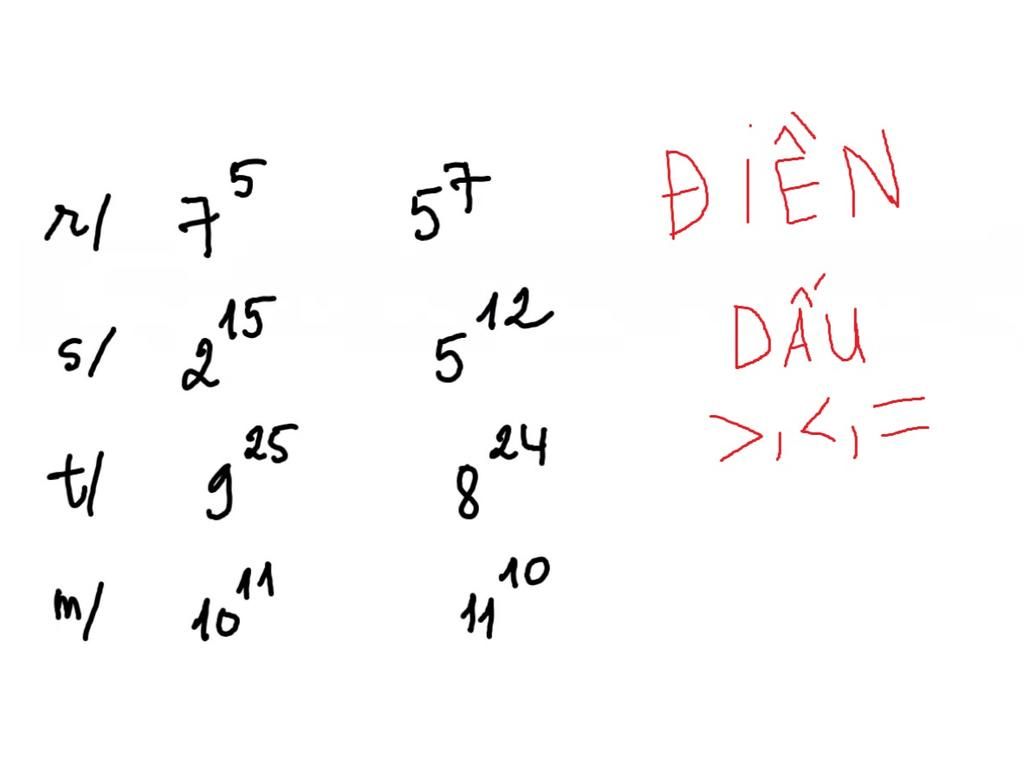 r/ 7^5 5^7
s/ 2^15 5^12
t/ 9^25 8^24
m/ 10^11 11^10
ĐIỀN
DẤU
>,<,=